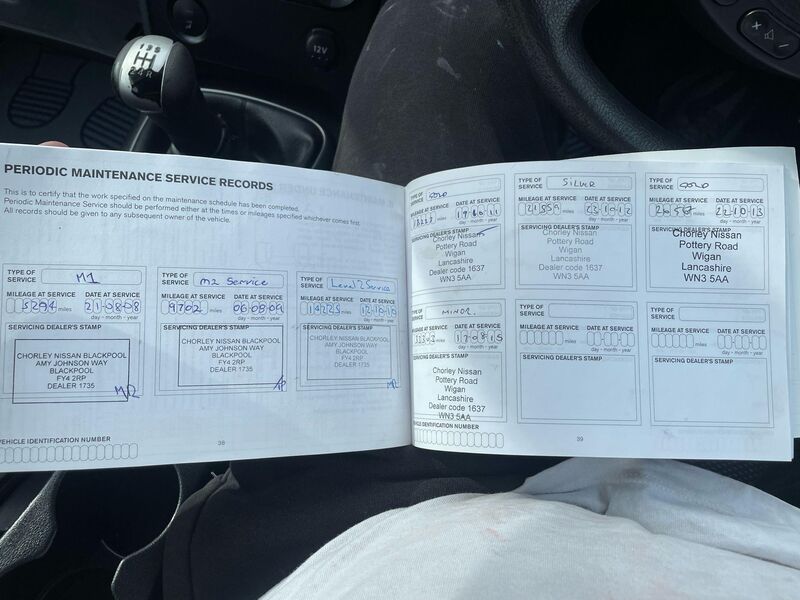 12V
PERIODIC MAINTENANCE SERVICE RECORDS
This is to certify that the work specified on the maintenance schedule has been completed.
Periodic Maintenance Service should be performed either at the times or mileages specified whichever comes first.
All records should be given to any subsequent owner of the vehicle.
TYPE OF SERVICE M1
MILEAGE AT SERVICE DATE AT SERVICE
5294 miles 21-08-08
day - month - year
SERVICING DEALER'S STAMP
CHORLEY NISSAN BLACKPOOL
AMY JOHNSON WAY
BLACKPOOL
FY4 2RP
DEALER 1735
TYPE OF SERVICE M2 Service
MILEAGE AT SERVICE DATE AT SERVICE
9702 miles 06-08-09
day - month - year
SERVICING DEALER'S STAMP
CHORLEY NISSAN BLACKPOOL
AMY JOHNSON WAY
BLACKPOOL
FY4 2RP
DEALER 1735
TYPE OF SERVICE Level 2 Service
MILEAGE AT SERVICE DATE AT SERVICE
14225 miles 12-10-10
day - month - year
SERVICING DEALER'S STAMP
CHORLEY NISSAN BLACKPOOL
AMY JOHNSON WAY
BLACKPOOL
FY4 2RP
DEALER 1735
VEHICLE IDENTIFICATION NUMBER
38
TYPE OF SERVICE GOLD
MILEAGE AT SERVICE DATE AT SERVICE
miles
day - month - year
SERVICING DEALER'S STAMP
Chorley Nissan
Pottery Road
Wigan
Lancashire
Dealer code 1637
WN3 5AA
TYPE OF SERVICE SILVER
MILEAGE AT SERVICE DATE AT SERVICE
21559 miles 23-10-12
day - month - year
SERVICING DEALER'S STAMP
Chorley Nissan
Pottery Road
Wigan
Lancashire
Dealer code 1637
WN3 5AA
TYPE OF SERVICE GOLD
MILEAGE AT SERVICE DATE AT SERVICE
miles 22-10-13
day - month - year
SERVICING DEALER'S STAMP
Chorley Nissan
Pottery Road
Wigan
Lancashire
Dealer code 1637
WN3 5AA
TYPE OF SERVICE MINOR
MILEAGE AT SERVICE DATE AT SERVICE
miles 17-08-15
day - month - year
SERVICING DEALER'S STAMP
Chorley Nissan
Pottery Road
Wigan
Lancashire
Dealer code 1637
WN3 5AA
TYPE OF SERVICE
MILEAGE AT SERVICE DATE AT SERVICE
miles
day - month - year
SERVICING DEALER'S STAMP
TYPE OF SERVICE
MILEAGE AT SERVICE DATE AT SERVICE
miles
day - month - year
SERVICING DEALER'S STAMP
VEHICLE IDENTIFICATION NUMBER
39